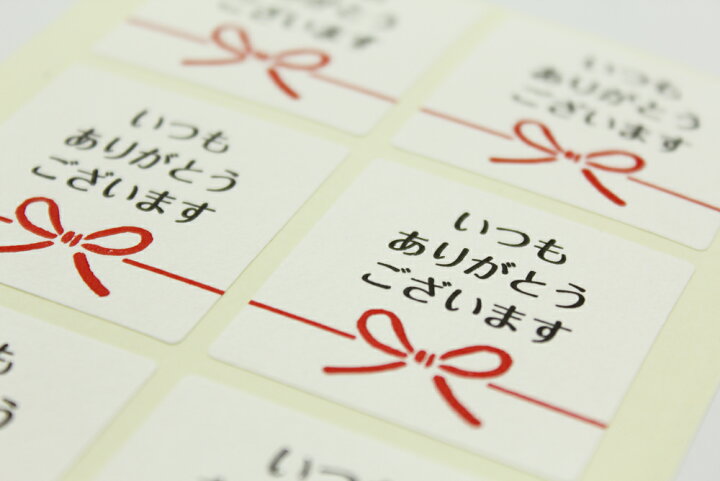 ございます
いつも
ありがとう
ございます
いつも
ありがとう
ございます
いつも
ありがとう
ございます
も
う
いつも